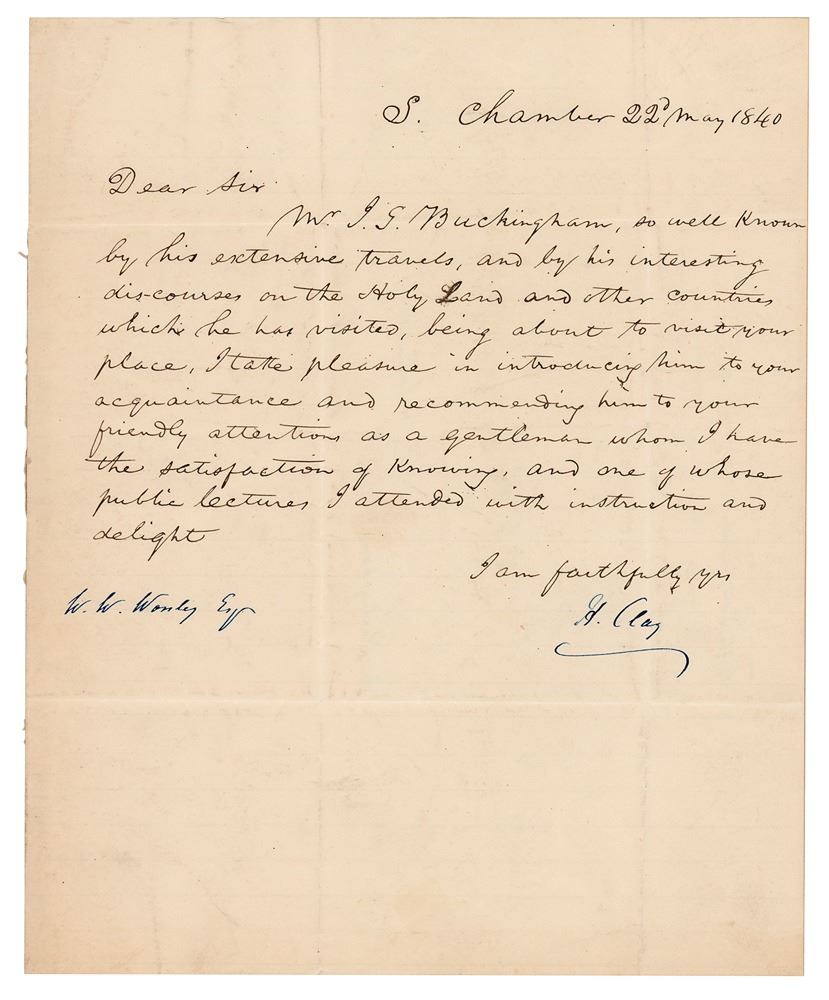 S. Chamber 22d May 1840
Dear Sir
Mr J. S. Buckingham, so well Known
by his extensive travels, and by his interesting
dis-courses on the Holy Land and other countries
which he has visited, being about to visit your
place, I take pleasure in introducing him to your
acquaintance and recommending him to your
friendly attentions as a gentleman whom I have
the satisfaction of Knowing, and one of whose
public lectures I attended with instruction and
delight
I am faithfully yrs
W. W. Worsley Esq
H. Clay